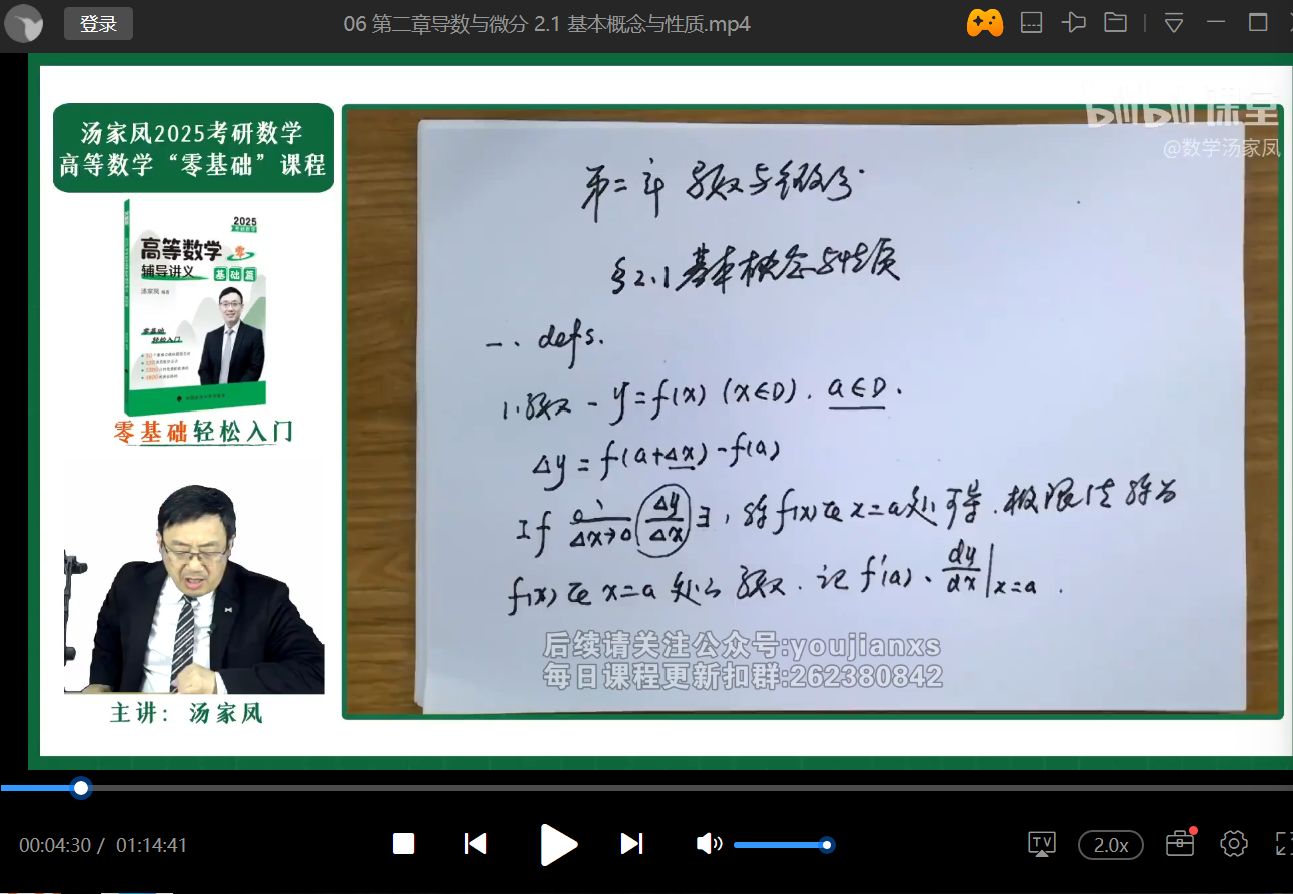 登录
06 第二章导数与微分 2.1 基本概念与性质.mp4
汤家凤2025考研数学
高等数学“零基础”课程
2025
高等数学 零
辅导讲义 基础篇
汤家凤 编著
零基础
轻松入门
零基础轻松入门
主讲： 汤家凤
bilibili课堂
@数学汤家凤
第二章 导数与微分
§2.1 基本概念与性质
一、defs.
1.导数 - y=f(x) (x∈D). a∈D.
Δy = f(a+Δx) - f(a)
If lim Δx→0 Δy/Δx ∃, 称f(x)在x=a处可导. 极限值称为
f(x)在x=a处的导数. 记f'(a)、dy/dx|x=a.
后续请关注公众号:youjianxs
每日课程更新扣群:262380842
00:04:30 / 01:14:41
TV
2.0x